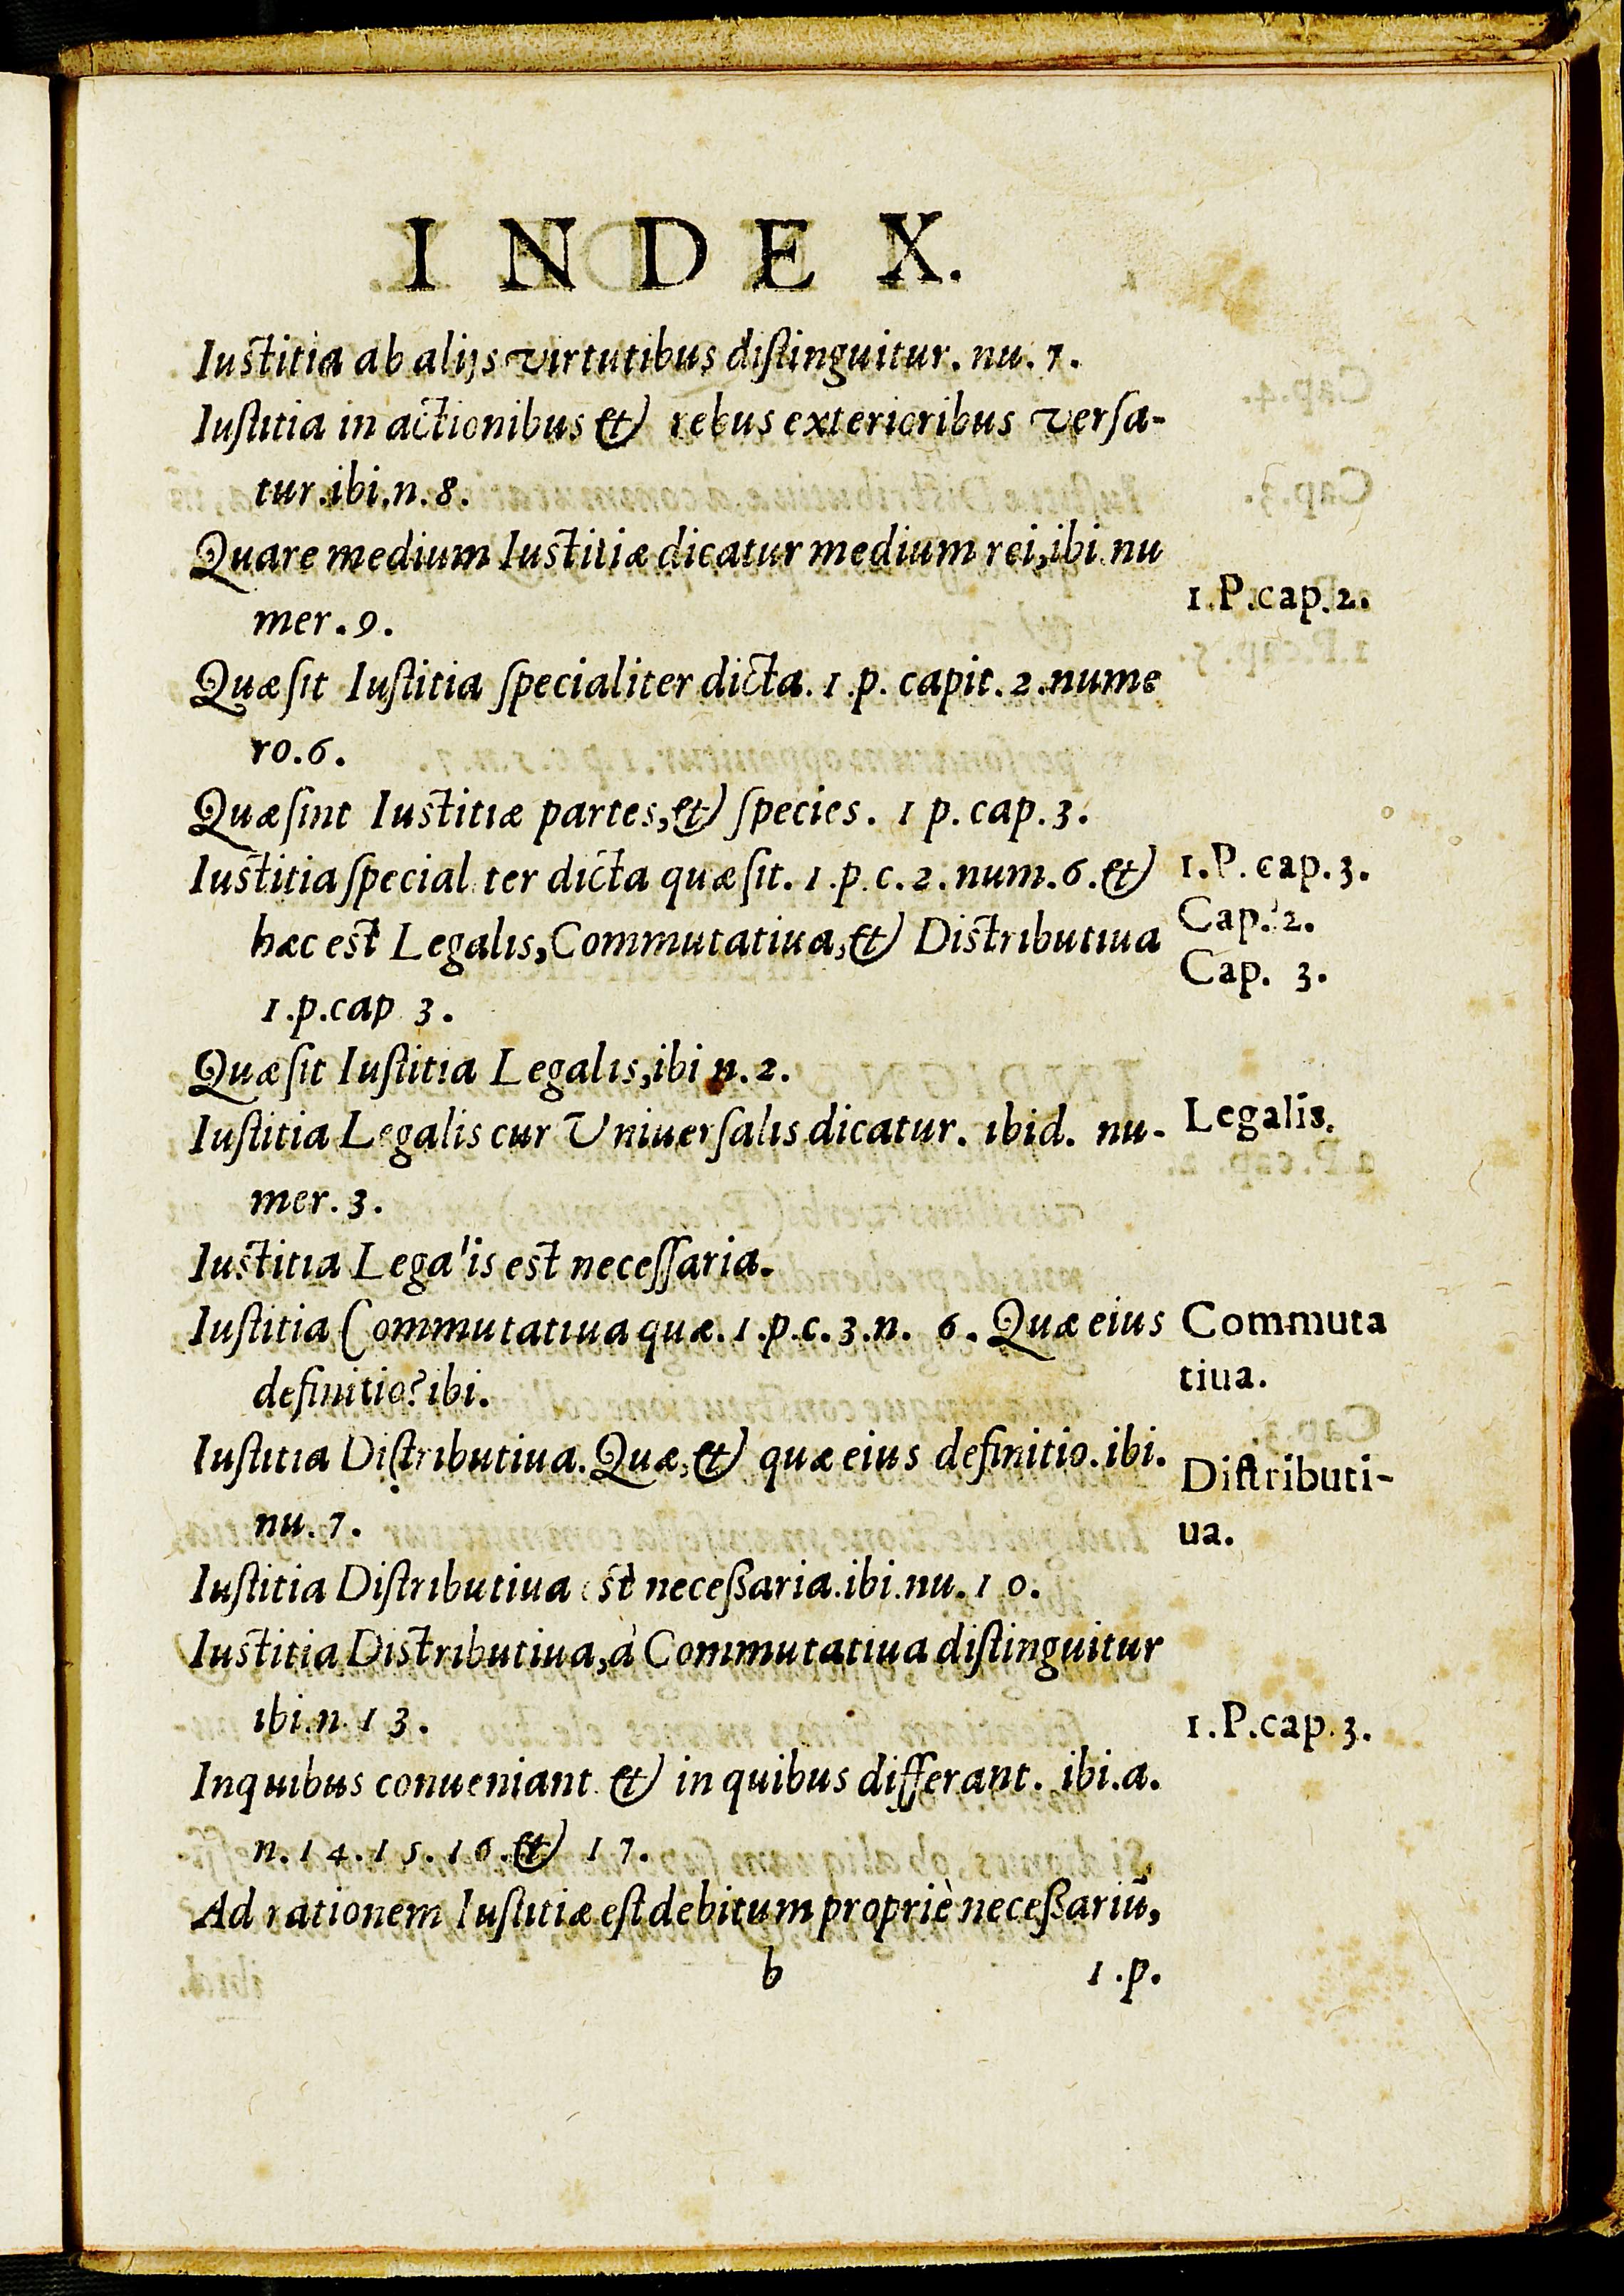 INDEX.
Iustitia ab alijs virtutibus distinguitur. nu. 7.
Iustitia in actionibus & rebus exterioribus versa-
tur. ibi. n. 8.
Quare medium Iustitiæ dicatur medium rei, ibi. nu
mer. 9.
1. P. cap. 2.
Quæ sit Iustitia specialiter dicta. 1. p. capit. 2. nume
ro. 6.
Quæ sint Iustitiæ partes, & species. 1 p. cap. 3.
Iustitia special ter dicta quæ sit. 1. p. c. 2. num. 6. &
1. P. cap. 3.
Cap. 2.
hæc est Legalis, Commutatiua, & Distributiua
Cap. 3.
1. p. cap 3.
Quæ sit Iustitia Legalis, ibi n. 2.
Iustitia Legalis cur Vniuersalis dicatur. ibid. nu-
Legalis.
mer. 3.
Iustitia Legalis est necessaria.
Iustitia Commutatiua quæ. 1. p. c. 3. n. 6. Quæ eius
Commuta
definitio? ibi.
tiua.
Iustitia Distributiua. Quæ, & quæ eius definitio. ibi.
Distributi-
nu. 7.
ua.
Iustitia Distributiua est necessaria. ibi. nu. 10.
Iustitia Distributiua, à Commutatiua distinguitur
ibi. n. 13.
1. P. cap. 3.
In quibus conueniant & in quibus differant. ibi. a.
n. 14. 15. 16. & 17.
Ad rationem Iustitiæ est debitum propriè necessariũ,
b 1. p.